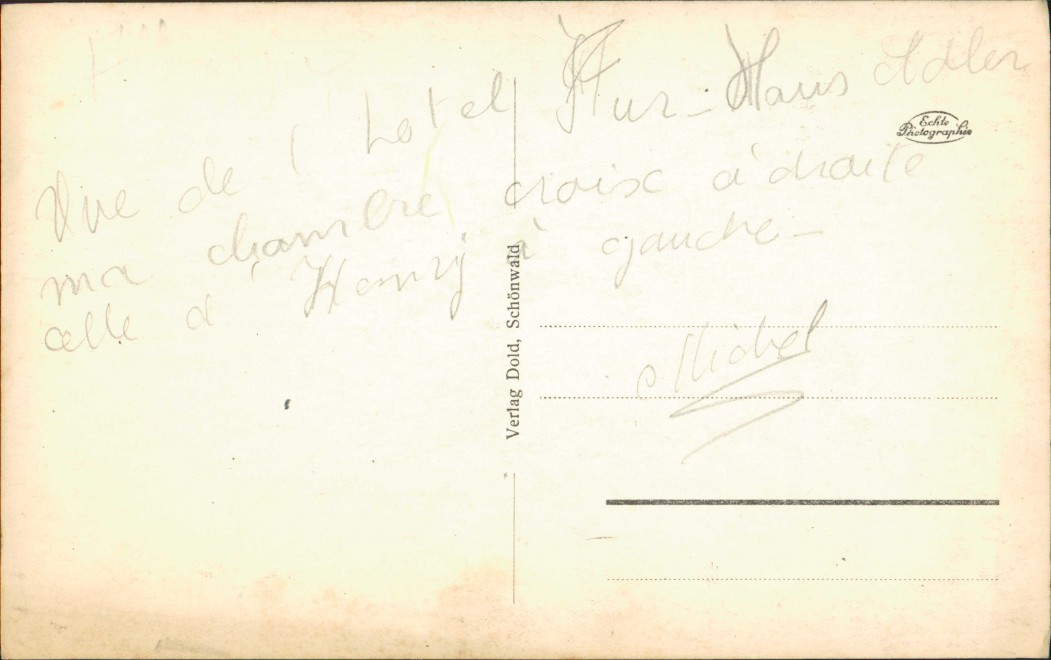 Vue de l'hotel Kur-Haus Adler
ma chambre, croix à droite
celle d'Henry à gauche -
Michel
Echte
Photographie
Verlag Dold, Schönwald